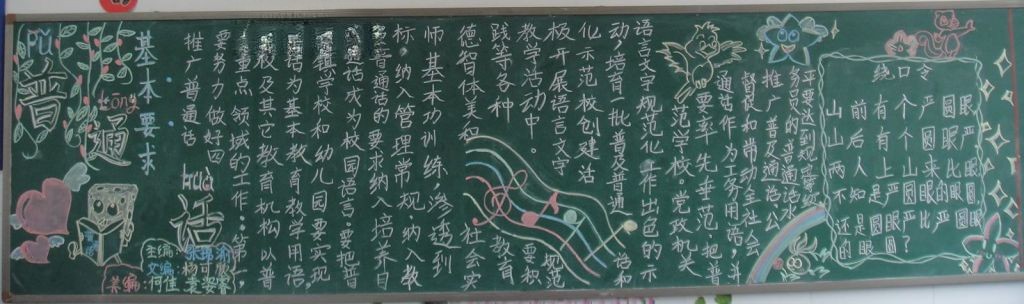 Pǔ
普
tōng
通
huà
话
基本要求
推广普通话
要努力做好四
重点领域的工作:第一,
校及其它教育机构以普
为基本教育教学用语,
学校和幼儿园要实现
通话成为校园语言,要把普
普通话的要求纳入培养目
标,纳入管理常规,纳入教
师基本功训练,渗透到
德智体美和社会实
践等各种教育
教学活动中。要积
极开展语言文字规范
化示范校创建活
动,培育一批普及普通话和
语言文字规范化工作出色的示
范学校。党政机关
要率先垂范,把普
通话作为工务用语,并
督促和带动全社会
推广普及普通话。公
务员的普通话
平要达到规定
绕口令
山前有个严圆眼
山后有个圆眼严
两人上山来比眼
不知是严圆眼的眼圆
还是圆眼严比严圆眼
的眼圆?
主编:
文编:杨可
美编:何佳